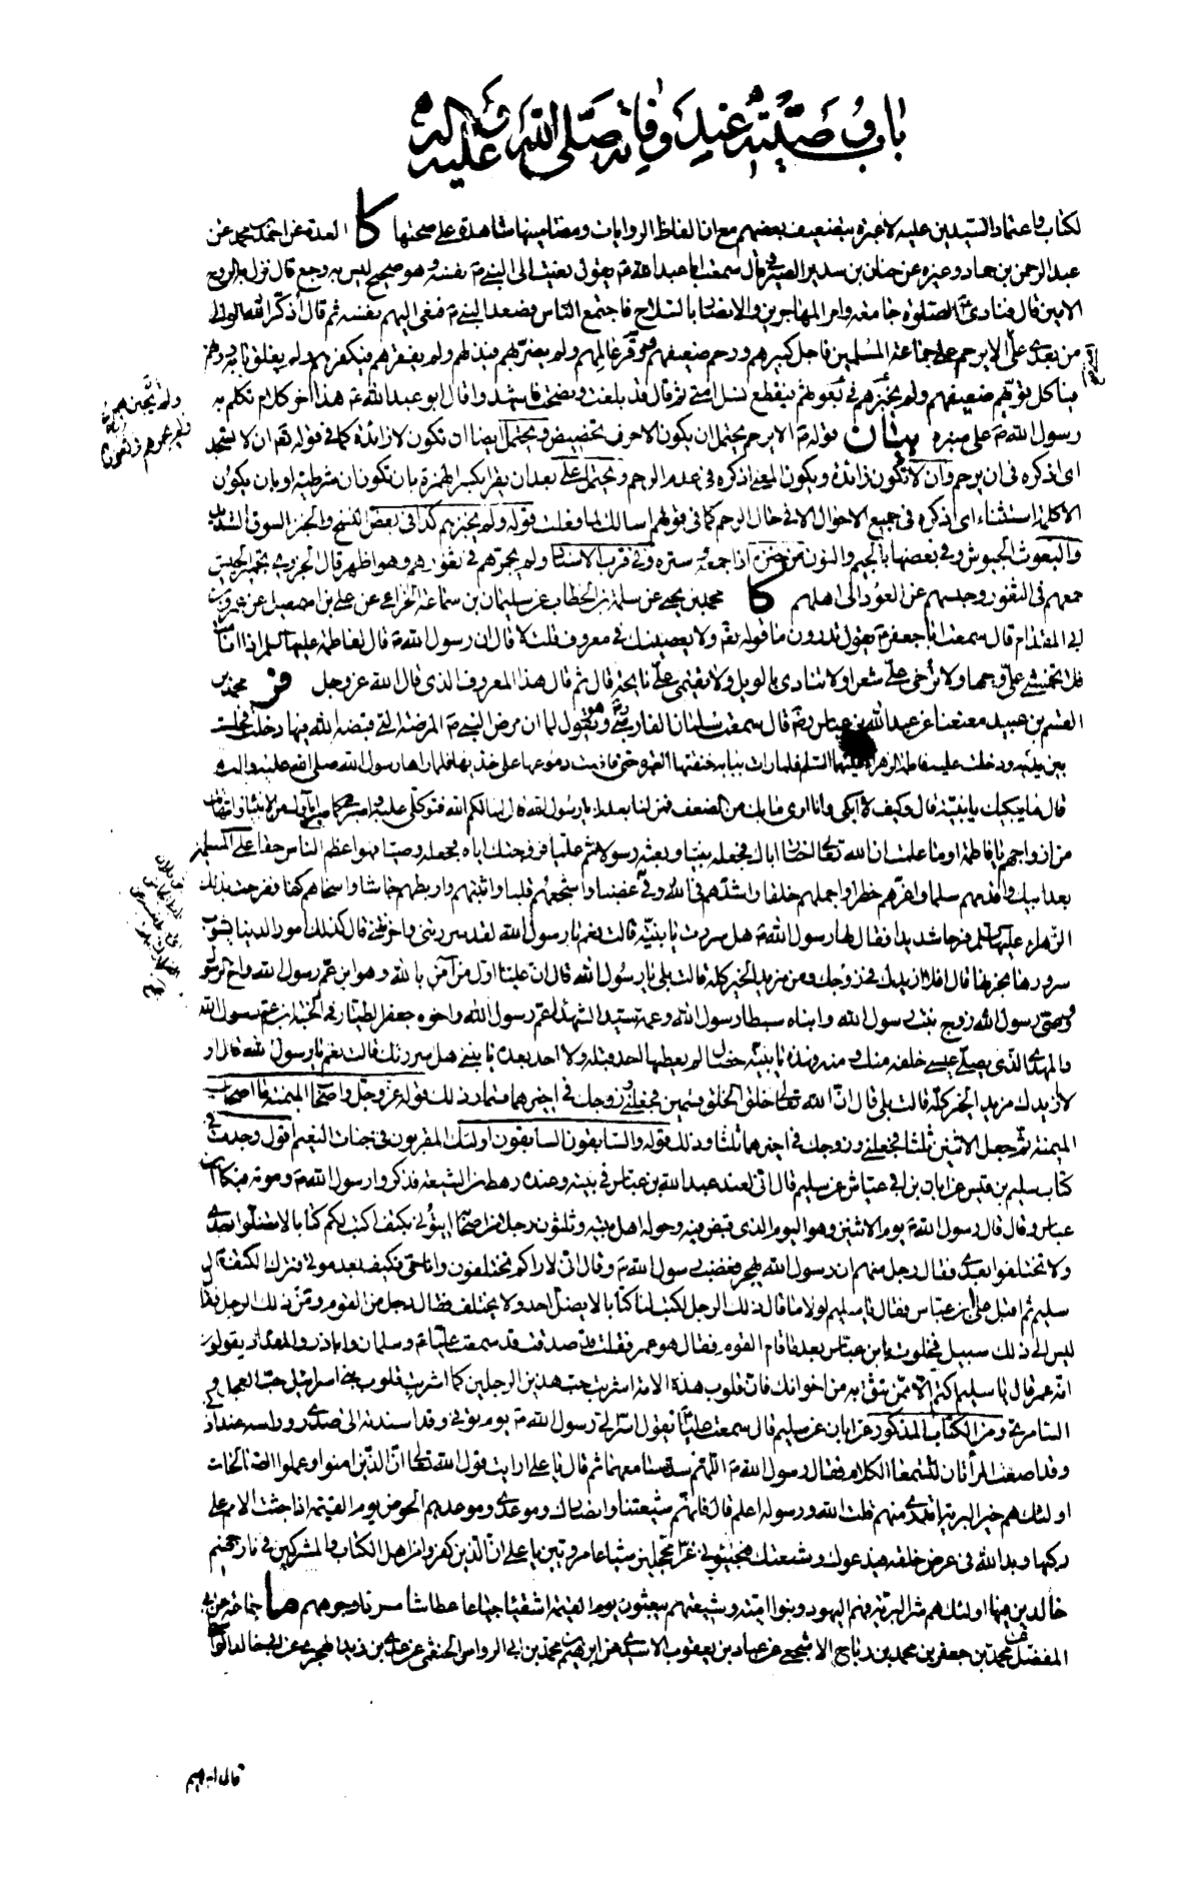 باب وصيته عند وفاته صلى الله عليه وآله
لكتاب واعتماد السيدين عليه لا عبرة بتضعيف بعضهم مع ان الفاظ الروايات ومضامينها شاهدة على صحتها كا العدة عن احمد بن محمد عن
عبد الرحمن بن حماد وغيره عن حنان بن سدير الصيرفي قال سمعت ابا عبد الله ع يقول نعيت الى النبي ص نفسه وهو صحيح ليس به وجع قال نزل به الروح
الامين قال فنادى ص الصلوة جامعة وامر المهاجرين والانصار بالسلاح فاجتمع الناس فصعد النبي ص المنبر فنعى اليهم نفسه ثم قال اذكر الله الوالي
من بعدي على امتي الا يرحم على جماعة المسلمين فاجل كبيرهم ورحم ضعيفهم ووقر عالمهم ولم يضر بهم فيذلهم ولم يفقرهم فيكفرهم ولم يغلق بابه دونهم
فياكل قويهم ضعيفهم ولم يخبزهم في بعوثهم فيقطع نسل امتي ثم قال قد بلغت ونصحت فاشهدوا قال ابو عبد الله ع هذا آخر كلام تكلم به
رسول الله ص على منبره بيان قوله ص الا يرحم يحتمل ان يكون الا حرف تحضيض ويحتمل ايضا ان تكون لا زائدة كما في قوله تعالى ان لا تسجد
اي اذكره في ان يرحم وان لا تكون زائدة ويكون المعنى اذكره في عدم الرحم ويحتمل على بعد ان يقرأ بكسر الهمزة بان تكون ان شرطية او بان يكون
الا كلمة استثناء اي اذكره في جميع الاحوال الا في حال الرحم كما في قولهم اسالك لما فعلت قوله ولم يخبزهم كذا في بعض النسخ والخبز السوق الشديد
والبعوث الجيوش وفي بعضها بالجيم والنون من جنزه اذا جمعه وستره وفي قرب الاسناد ولم يجمرهم في ثغورهم وهو اظهر قال الجزري تجمير الجيش
جمعهم في الثغور وحبسهم عن العود الى اهلهم كا محمد بن يحيى عن سلمة بن الخطاب عن سليمان بن سماعة الخزاعي عن علي بن اسمعيل عن عمرو بن
ابي المقدام قال سمعت ابا جعفر ع يقول تدرون ما قوله تعالى ولا يعصينك في معروف قلت لا قال ان رسول الله ص قال لفاطمة عليها السلم اذا انا مت
فلا تخمشي علي وجها ولا ترخي علي شعرا ولا تنادي بالويل ولا تقيمي علي نائحة قال ثم قال هذا المعروف الذي قال الله عز وجل فر محمد بن
القسم بن عبيد معنعنا عن عبد الله بن عباس رض قال سمعت سلمان الفارسي وهو يقول لما ان مرض النبي ص المرضة التي قبضه الله فيها دخلت فجلست
بين يديه ودخلت عليه فاطمة الزهراء عليها السلم فلما رات ما به خنقتها العبرة حتى فاضت دموعها على خديها فلما ان رآها رسول الله صلى الله عليه واله
قال ما يبكيك يا بنية قال وكيف لا ابكي وانا ارى ما بك من الضعف فمن لنا بعدك يا رسول الله قال لها لكم الله فتوكلي عليه واصبري كما صبر آباؤك من الانبياء وامهاتك
من ازواجهم يا فاطمة او ما علمت ان الله تعالى اختار اباك فجعله نبيا وبعثه رسولا ثم عليا فزوجتك اياه وجعله وصيا فهو اعظم الناس حقا على المسلمين
بعد ابيك واقدمهم سلما واعزهم خطرا واجملهم خلقا واشدهم في الله وفي غضبا واشجعهم قلبا واثبتهم واربطهم جاشا واسخاهم كفا ففرحت بذلك
الزهراء عليها السلم فرحا شديدا فقال لها رسول الله ص هل سررت يا بنية قالت نعم يا رسول الله لقد سررتني واحزنتني قال كذلك امور الدنيا يشوب
سرورها بحزنها قال افلا ازيدك في زوجك من مزيد الخير كله قالت بلى يا رسول الله قال ان عليا اول من آمن بالله وهو ابن عم رسول الله واخ الرسول
ووصي رسول الله وزوج بنت رسول الله وابناه سبطا رسول الله وعمه سيد الشهداء عم رسول الله واخوه جعفر الطيار في الجنة ابن عم رسول الله
والمهدي الذي يصلي عيسى خلفه منك ومنه فهذه يا بنية خصال لم يعطها احد قبله ولا احد بعده يا بنتي هل سررتك قالت نعم يا رسول الله قال او
لا ازيدك مزيد الخير كله قالت بلى قال ان الله تعالى خلق الخلق قسمين فجعلني وزوجك في اخيرهما قسما وذلك قوله عز وجل واصحاب الميمنة ما اصحاب
الميمنة ثم جعل الاثنين ثلثا فجعلني وزوجك في اخيرها ثلثا وذلك قوله والسابقون السابقون اولئك المقربون في جنات النعيم اقول وجدت في
كتاب سليم بن قيس عن ابان بن ابي عياش عن سليم قال اني لعند عبد الله بن عباس في بيته وعنده رهط من الشيعة فذكروا رسول الله ص وموته فبكى ابن
عباس وقال قال رسول الله ص يوم الاثنين وهو اليوم الذي قبض فيه وحوله اهل بيته وثلثون رجلا من اصحابه ايتوني بكتف اكتب لكم كتابا لا تضلوا بعدي
ولا تختلفوا بعدي فقال رجل منهم ان رسول الله يهجر فغضب رسول الله ص وقال اني لاراكم تختلفون وانا حي فكيف بعد موتي فترك الكتف قال
سليم ثم اقبل علي ابن عباس فقال يا سليم لولا ما قال ذلك الرجل لكتب لنا كتابا لا يضل احد ولا يختلف فقال رجل من القوم ومن ذلك الرجل فقال
ليس الى ذلك سبيل فخلوت بابن عباس بعد ما قام القوم فقال هو عمر فقلت صدقت قد سمعت عليا ع وسلمان وابا ذر والمقداد يقولون
انه عمر قال يا سليم اكتم الا ممن تثق به من اخوانك فان قلوب هذه الامة اشربت حب هذين الرجلين كما اشربت قلوب بني اسرائيل حب العجل و
السامري ومن الكتاب المذكور عن ابان عن سليم قال سمعت عليا يقول اسر الي رسول الله ص يوم توفي وقد اسندته الى صدري وراسه عند اذني
وقد اصغت المرأتان لتسمعا الكلام فقال رسول الله ص اللهم سد مسامعهما ثم قال يا علي ارايت قول الله تعالى ان الذين امنوا وعملوا الصالحات
اولئك هم خير البرية اتدري من هم قلت الله ورسوله اعلم قال فانهم شيعتنا وانصارك وموعدي وموعدهم الحوض يوم القيمة اذا جثت الامم على
ركبها وبدا لله في عرض خلقه فيدعوك وشيعتك فتجيئوني غرا محجلين شباعا مرويين يا علي ان الذين كفروا من اهل الكتاب والمشركين في نار جهنم
خالدين فيها اولئك هم شر البرية فهم اليهود وبنوا امية وشيعتهم يبعثون يوم القيمة اشقياء جياعا عطاشا مسودة وجوههم ما جماعة عن ابي
المفضل عن محمد بن جعفر بن محمد بن رباح الاشجعي عن عباد بن يعقوب الاسدي عن ابرهيم بن محمد بن ابي الرواس الخثعمي عن عدي بن زيد الهجري عن ابي خالد الواسطي
قال ابرهيم